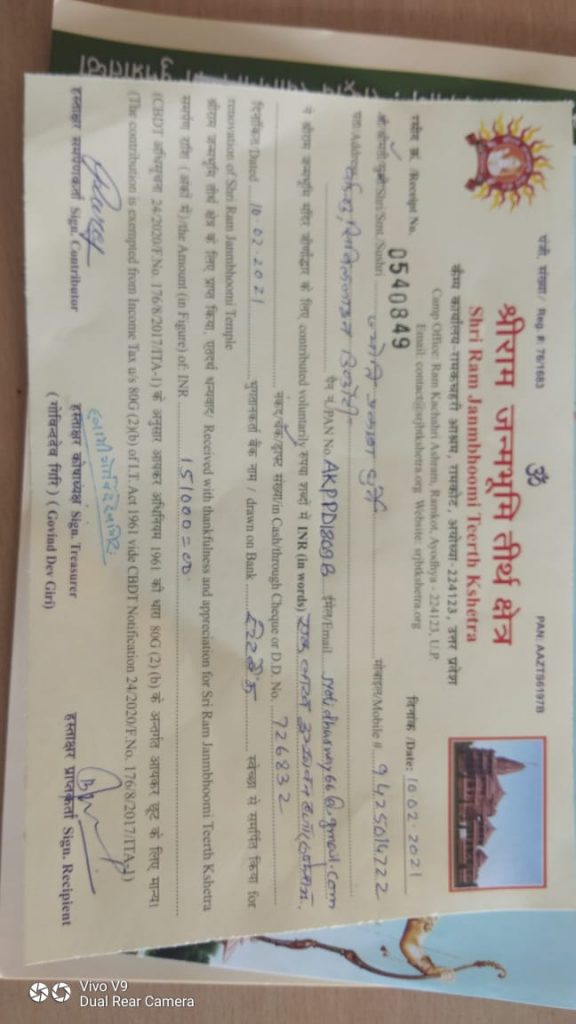 पंजी. संख्या / Reg. #: 76/1683
ॐ
PAN: AAZTS6197B
श्रीराम जन्मभूमि तीर्थ क्षेत्र
Shri Ram Janmbhoomi Teerth Kshetra
कैम्प कार्यालय-रामकचहरी आश्रम, रामकोट, अयोध्या-224123, उत्तर प्रदेश
Camp Office: Ram Kachahri Ashram, Ramkot, Ayodhya - 224123, U.P.
Email: contact@srjbtkshetra.org Website: srjbtkshetra.org
रसीद क्र. /Receipt No. 0540849
दिनांक /Date: 10.02.2021
श्री/श्रीमती/सुश्री Shri/Smt./Sushri ज्योति प्रकाश धुर्वे मोबाइल/Mobile # 9425014722
पता/Address सिविल लाइन डिंडोरी
पैन नं./PAN No. AKPPD1809B ईमेल/Email
ने श्रीराम जन्मभूमि मंदिर जीर्णोद्धार के लिए contributed voluntarily रुपया शब्दों में INR (in words) एक लाख इक्यावन हजार
नकद/चेक/ड्राफ्ट संख्या/in Cash/through Cheque or D.D. No. 726832
दिनांकित Dated 10.02.2021 भुगतानकर्ता बैंक नाम / drawn on Bank स्वेच्छा से समर्पित किया for
renovation of Shri Ram Janmbhoomi Temple
श्रीराम जन्मभूमि तीर्थ क्षेत्र के लिए प्राप्त किया, एतदर्थ धन्यवाद! Received with thankfulness and appreciation for Sri Ram Janmbhoomi Teerth Kshetra
समर्पण राशि (अंकों में)/the Amount (in Figure) of: INR 151000=00
(CBDT अधिसूचना 24/2020/F.No. 176/8/2017/ITA-1) के अनुसार आयकर अधिनियम 1961 की धारा 80G (2) (b) के अन्तर्गत आयकर छूट के लिए मान्य।
(The contribution is exempted from Income Tax u/s 80G (2)(b) of I.T. Act 1961 vide CBDT Notification 24/2020/F.No. 176/8/2017/ITA-1)
हस्ताक्षर समर्पणकर्ता Sign. Contributor
हस्ताक्षर कोषाध्यक्ष Sign. Treasurer
हस्ताक्षर प्राप्तकर्ता Sign. Recipient
(गोविन्ददेव गिरि) (Govind Dev Giri)
Vivo V9
Dual Rear Camera